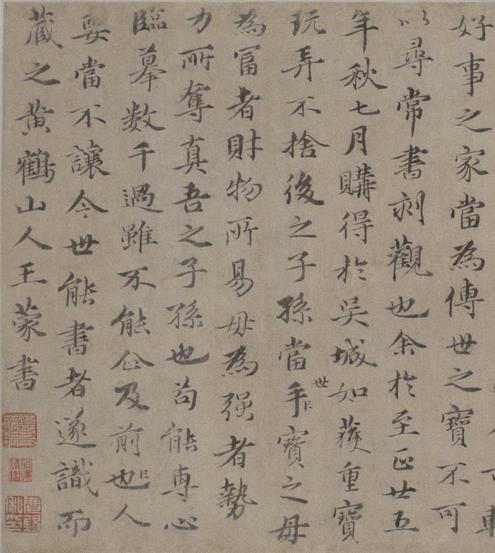 好事之家當為傳世之寶不可
以尋常書刻觀也余於至正廿五
年秋七月購得於吳城如獲重寶
玩弄不捨後之子孫當手世寶之毋
為富者財物所易毋為强者勢
力所奪真吾之子孫也苟能專心
臨摹數千過雖不能企及前也人
要當不讓今世能書者遂識而
藏之黃鶴山人王蒙書